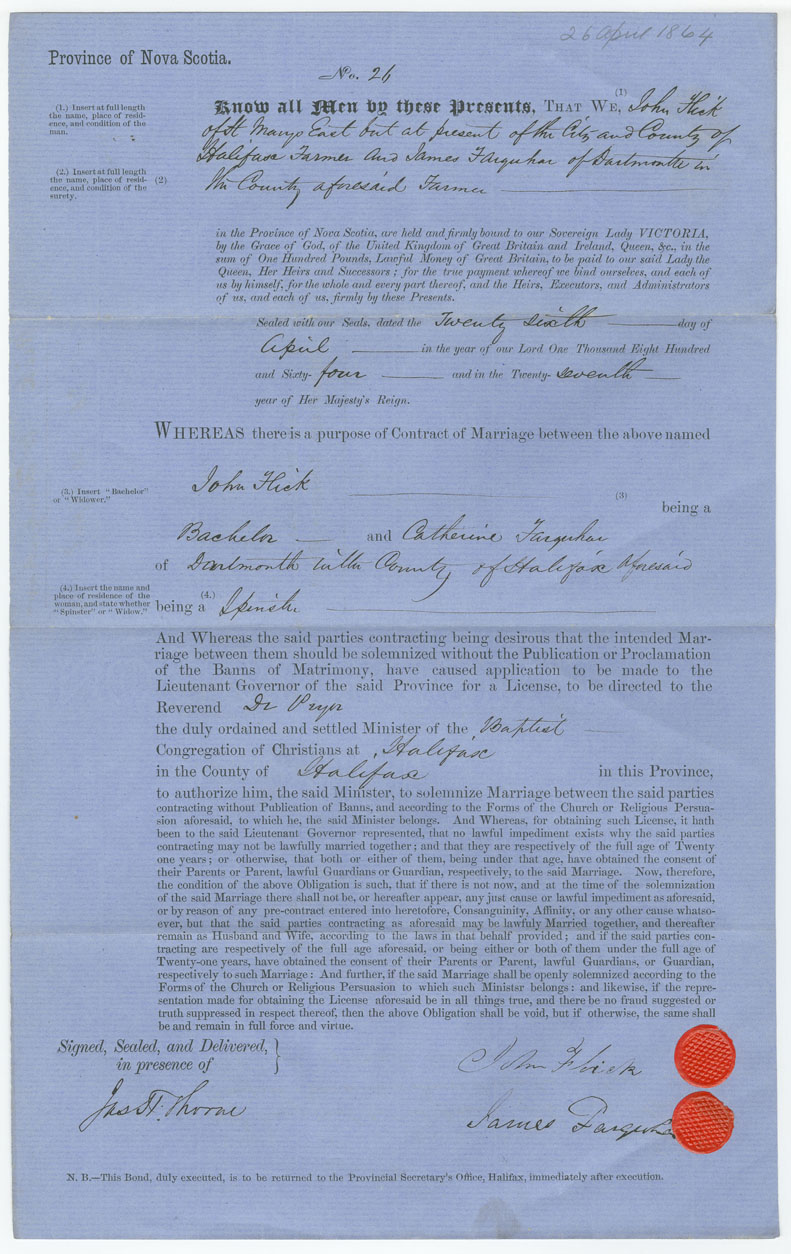 26 April 1864
Province of Nova Scotia.
No. 26
(1.) Insert at full length
the name, place of resid-
ence, and condition of the
man.
(1)
Know all Men by these Presents, THAT WE, John Flick
of St Marys East but at present of the City and County of
Halifax Farmer and James Farquhar of Dartmouth in
(2.) Insert at full length
the name, place of resid-
ence, and condition of the
surety.
(2)
the County aforesaid Farmer
in the Province of Nova Scotia, are held and firmly bound to our Sovereign Lady VICTORIA,
by the Grace of God, of the United Kingdom of Great Britain and Ireland, Queen, &c., in the
sum of One Hundred Pounds, Lawful Money of Great Britain, to be paid to our said Lady the
Queen, Her Heirs and Successors; for the true payment whereof we bind ourselves, and each of
us by himself, for the whole and every part thereof, and the Heirs, Executors, and Administrators
of us, and each of us, firmly by these Presents.
Sealed with our Seals, dated the Twenty sixth day of
April in the year of our Lord One Thousand Eight Hundred
and Sixty- four and in the Twenty- seventh
year of Her Majesty's Reign.
WHEREAS there is a purpose of Contract of Marriage between the above named
(3.) Insert "Bachelor"
or "Widower."
John Flick
(3)
being a
Bachelor and Catherine Farquhar
of Dartmouth in the County of Halifax aforesaid
(4.) Insert the name and
place of residence of the
woman, and state whether
"Spinster" or "Widow."
(4.)
being a Spinster
And Whereas the said parties contracting being desirous that the intended Mar-
riage between them should be solemnized without the Publication or Proclamation
of the Banns of Matrimony, have caused application to be made to the
Lieutenant Governor of the said Province for a License, to be directed to the
Reverend Dr Pryor
the duly ordained and settled Minister of the Baptist
Congregation of Christians at Halifax
in the County of Halifax in this Province,
to authorize him, the said Minister, to solemnize Marriage between the said parties
contracting without Publication of Banns, and according to the Forms of the Church or Religious Persua-
sion aforesaid, to which he, the said Minister belongs. And Whereas, for obtaining such License, it hath
been to the said Lieutenant Governor represented, that no lawful impediment exists why the said parties
contracting may not be lawfully married together; and that they are respectively of the full age of Twenty
one years; or otherwise, that both or either of them, being under that age, have obtained the consent of
their Parents or Parent, lawful Guardians or Guardian, respectively, to the said Marriage. Now, therefore,
the condition of the above Obligation is such, that if there is not now, and at the time of the solemnization
of the said Marriage there shall not be, or hereafter appear, any just cause or lawful impediment as aforesaid,
or by reason of any pre-contract entered into heretofore, Consanguinity, Affinity, or any other cause whatso-
ever, but that the said parties contracting as aforesaid may be lawfuly Married together, and thereafter
remain as Husband and Wife, according to the laws in that behalf provided; and if the said parties con-
tracting are respectively of the full age aforesaid, or being either or both of them under the full age of
Twenty-one years, have obtained the consent of their Parents or Parent, lawful Guardians, or Guardian,
respectively to such Marriage: And further, if the said Marriage shall be openly solemnized according to the
Forms of the Church or Religious Persuasion to which such Ministsr belongs: and likewise, if the repre-
sentation made for obtaining the License aforesaid be in all things true, and there be no fraud suggested or
truth suppressed in respect thereof, then the above Obligation shall be void, but if otherwise, the same shall
be and remain in full force and virtue.
Signed, Sealed, and Delivered,
in presence of
John Flick
Jas H. Thorne
James Farquhar
N. B.—This Bond, duly executed, is to be returned to the Provincial Secretary's Office, Halifax, immediately after execution.